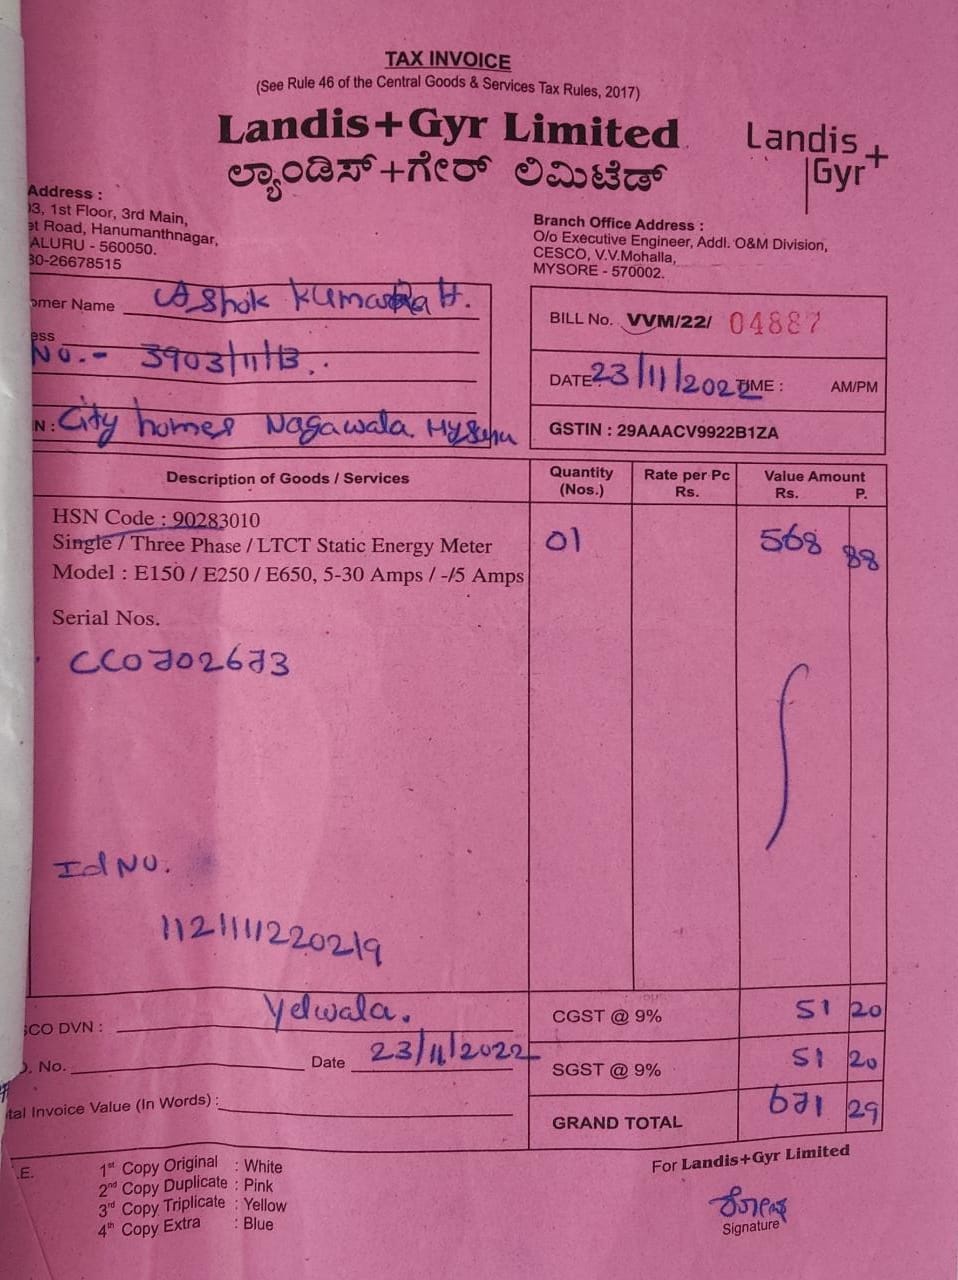 TAX INVOICE
(See Rule 46 of the Central Goods & Services Tax Rules, 2017)
Landis+Gyr Limited
ಲ್ಯಾಂಡಿಸ್+ಗೇರ್ ಲಿಮಿಟೆಡ್
Landis+
Gyr
Address :
03, 1st Floor, 3rd Main,
et Road, Hanumanthnagar,
ALURU - 560050.
80-26678515
Branch Office Address :
O/o Executive Engineer, Addl. O&M Division,
CESCO, V.V.Mohalla,
MYSORE - 570002.
omer Name Ashok Kumar H.
ess
No.- 3903/11/13.
N : City homes Nagawala
BILL No. VVM/22/ 04887
DATE : 23/11/2022 TIME : AM/PM
GSTIN : 29AAACV9922B1ZA
Description of Goods / Services Quantity (Nos.) Rate per Pc Rs. Value Amount Rs. P.
HSN Code : 90283010
Single / Three Phase / LTCT Static Energy Meter 01 568 88
Model : E150 / E250 / E650, 5-30 Amps / -/5 Amps
Serial Nos.
CC0702673
Id No.
112111220219
SCO DVN : Yelwala.
CGST @ 9% 51 20
. No. Date 23/11/2022
SGST @ 9% 51 20
tal Invoice Value (In Words) :
GRAND TOTAL 671 29
.E.
1st Copy Original : White
2nd Copy Duplicate : Pink
3rd Copy Triplicate : Yellow
4th Copy Extra : Blue
For Landis+Gyr Limited
Signature